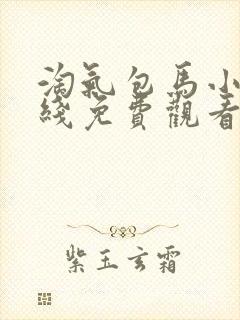 淘氣包馬小
綫免費觀看
紫玉玄霜